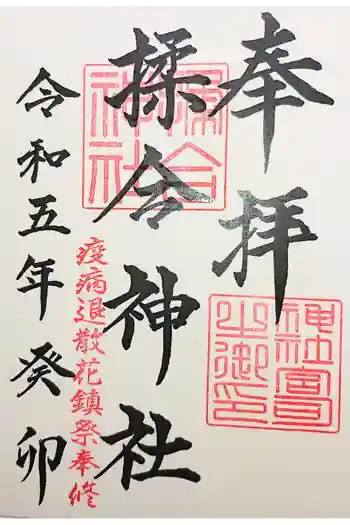 奉拝
揉合神社
疫病退散花鎮祭奉修
令和五年癸卯
神社宮司之御印